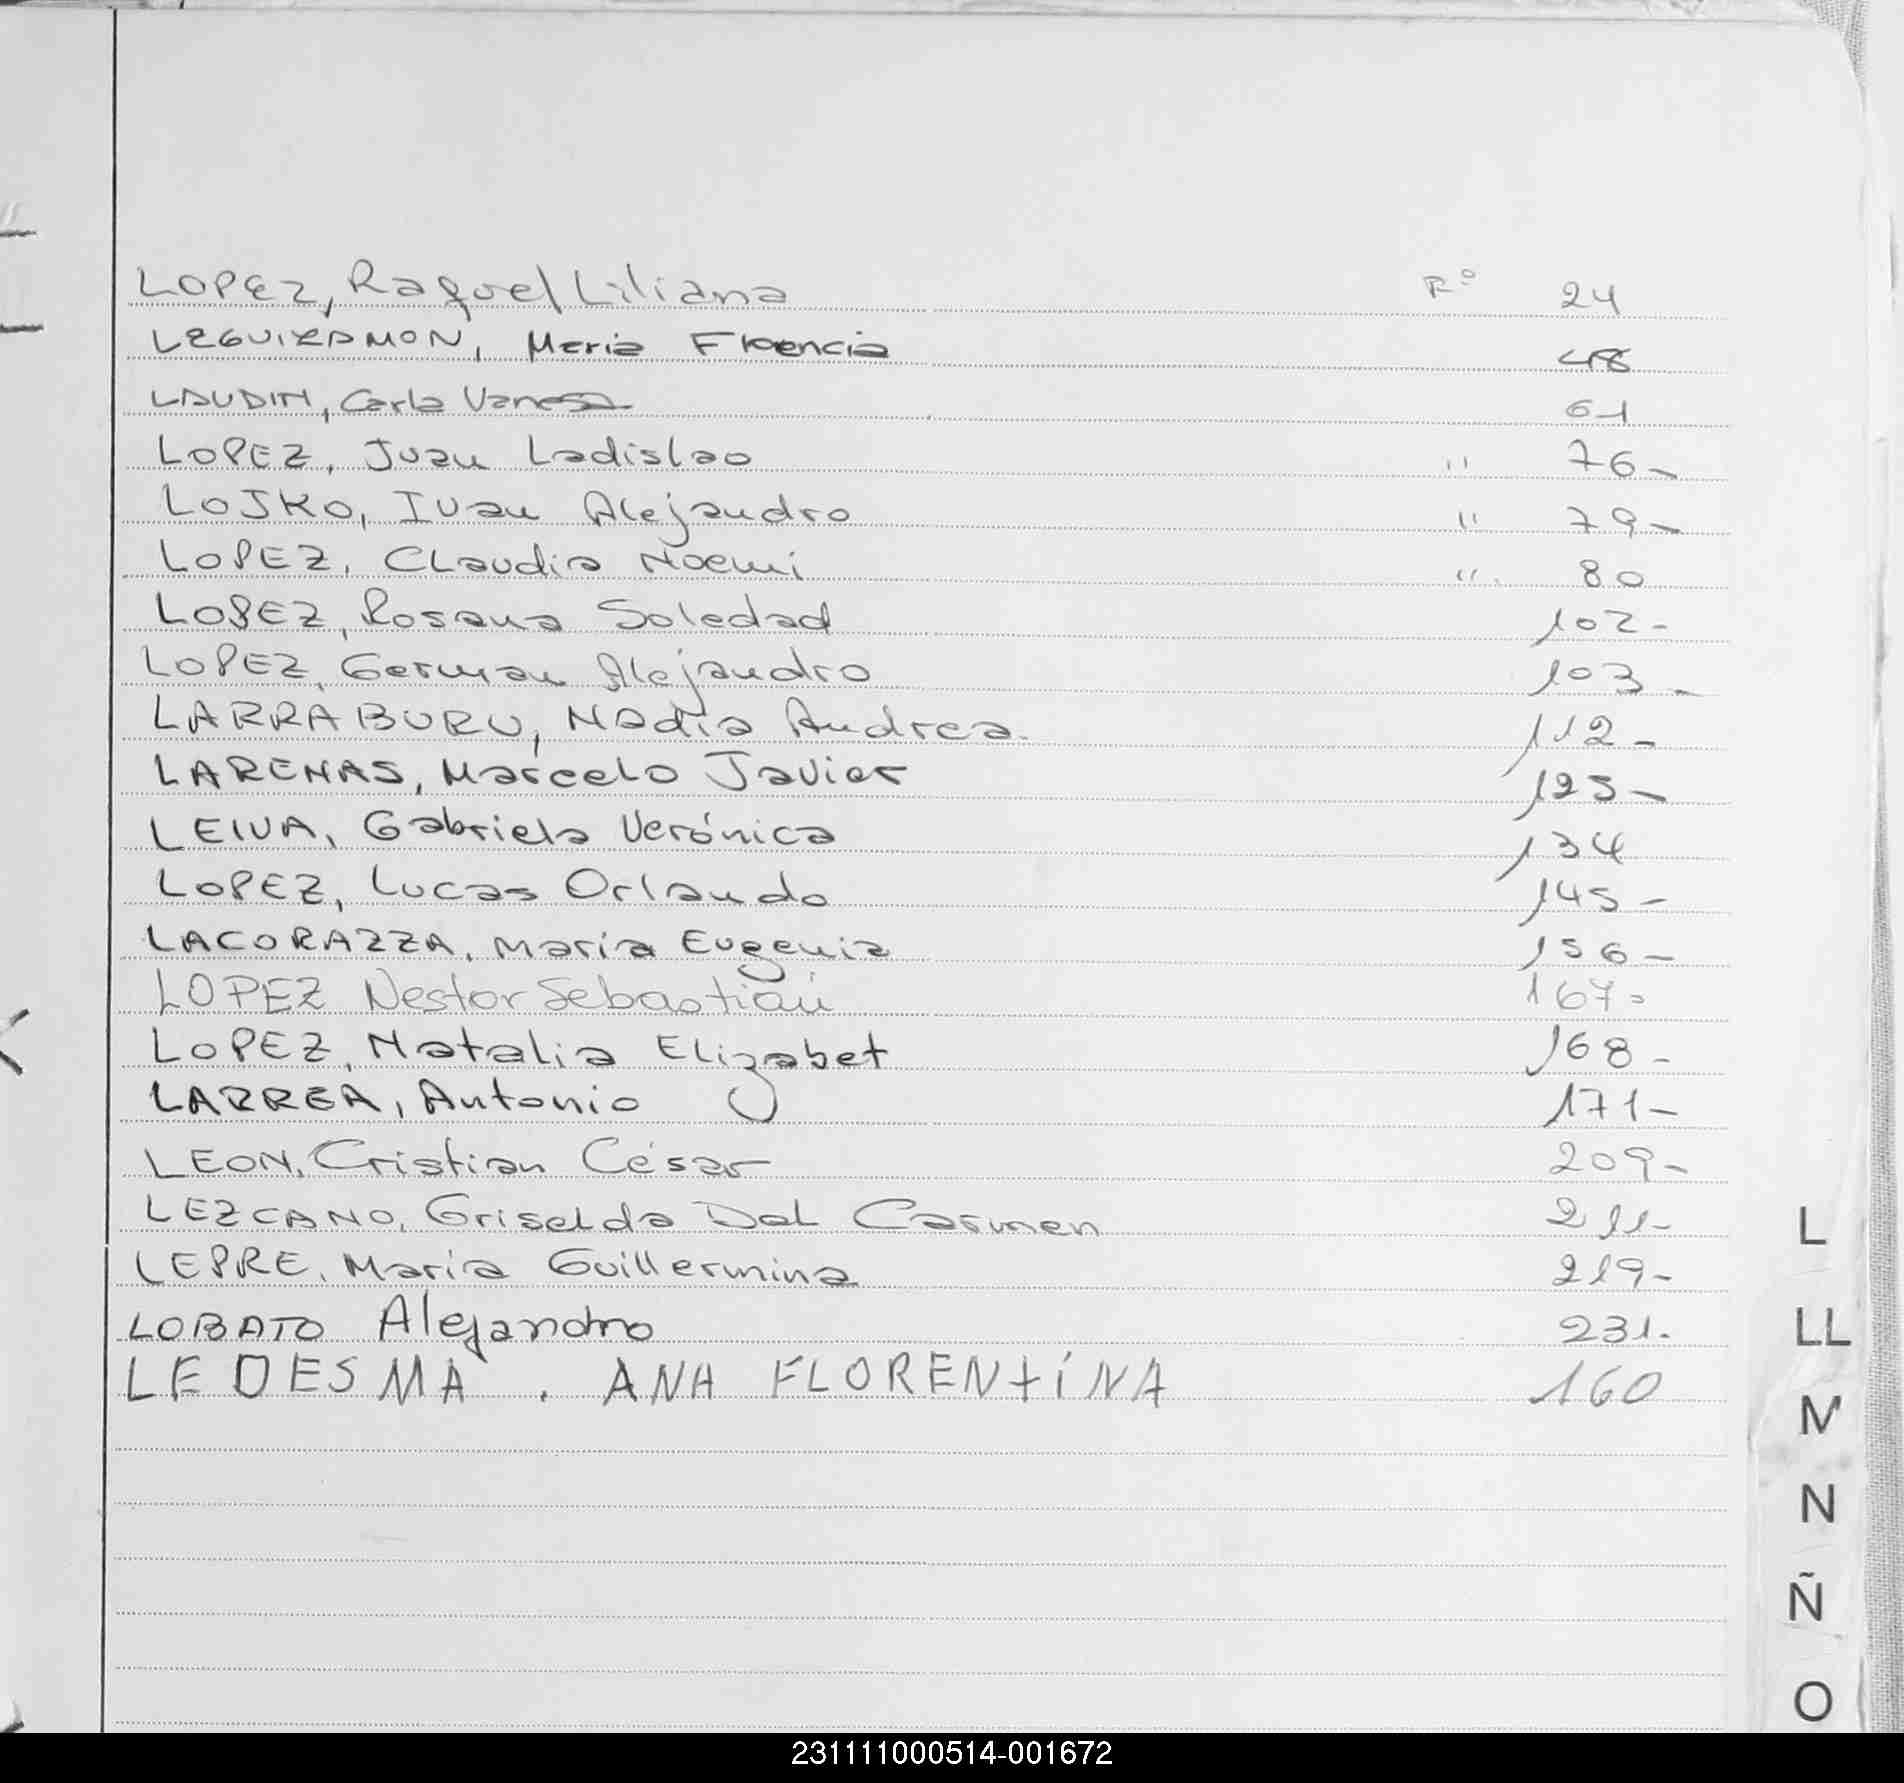 LOPEZ, Raquel Liliana Rº 24
LEGUIZAMON, Maria Florencia 48
LAUDIN, Carla Vanesa 61
LOPEZ, Juan Ladislao " 76-
LOJKO, Ivan Alejandro " 79-
LOPEZ, Claudia Noemi " 80
LOPEZ, Rosana Soledad 102-
LOPEZ, German Alejandro 103-
LARRABURU, Nadia Andrea. 112-
LARENAS, Marcelo Javier 125-
LEIVA, Gabriela Verónica 134
LOPEZ, Lucas Orlando 145-
LACORAZZA, Maria Eugenia 156-
LOPEZ Nestor Sebastian 167-
LOPEZ, Natalia Elizabet 168-
LARREA, Antonio 171-
LEON, Cristian César 209-
LEZCANO, Griselda Del Carmen 211-
L
LEPRE, Maria Guillermina 219-
LOBATO Alejandro 231.
LL
LEDESMA, ANA FLORENTINA 160
M
N
Ñ
O
231111000514-001672